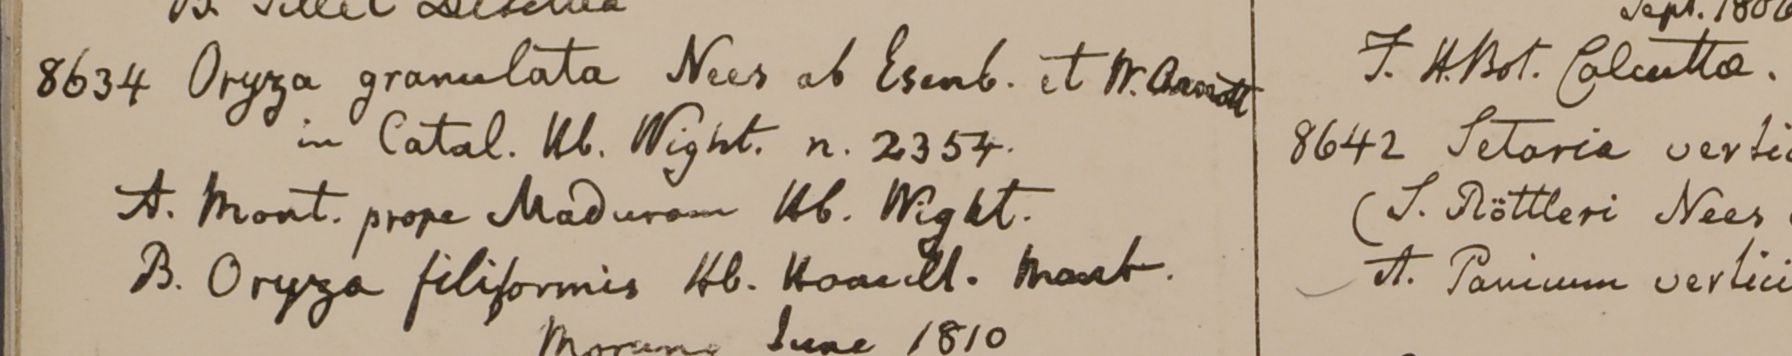 8634 Oryza granulata Nees ab Esenb. et W. Arnott
in Catal. Hb. Wight. n. 2354.
A. Mont. prope Maduram Hb. Wight.
B. Oryza filiformis Hb. Mont.
June 1810
Sept. 1806
F. H. Bot. Calcutta.
8642 Setaria vertic
(S. Röttleri Nees
A. Panicum vertici